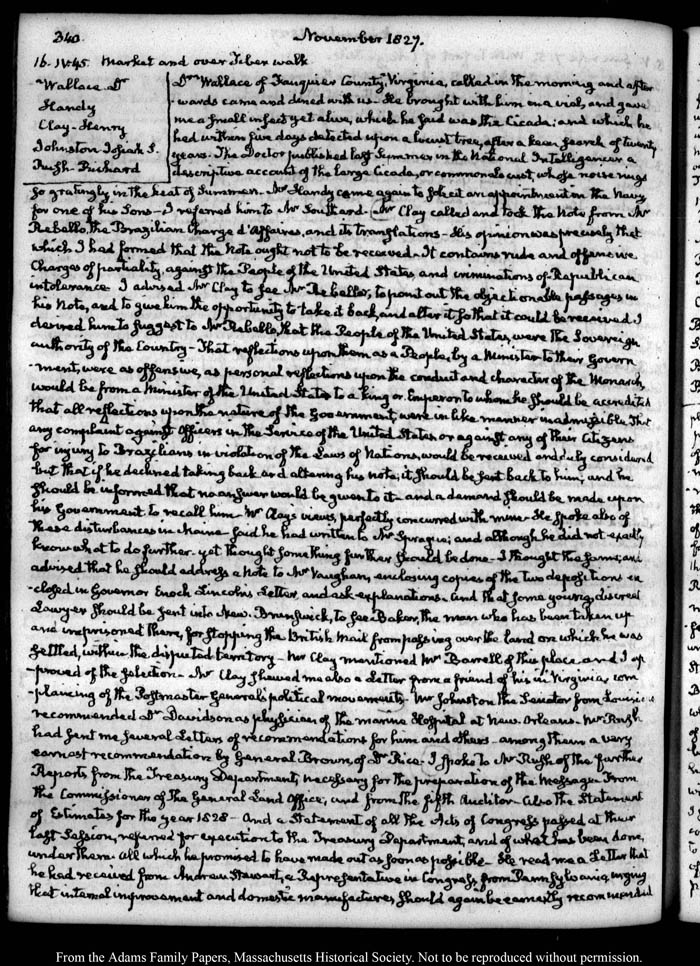 340.
November 1827.
16. IV:45. Market and over Tiber walk
Wallace. Dr
Handy
Clay-Henry
Johnston Josiah S.
Rush-Richard
Dr Wallace of Fauquier County, Virginia, called in the morning and after
-wards came and dined with us. He brought with him in a vial, and gave
me a small insect yet alive, which he said was the Cicada; and which he
had within five days detected upon a locust tree, after a keen search of twenty
years. The Doctor published last Summer in the National Intelligencer a
descriptive account of the large Cicada, or common locust, whose noise rings
so gratingly in the heat of Summer. Mr Handy came again to solicit an appointment in the Navy
for one of his Sons—I referred him to Mr Southard. Mr Clay called and took the Note from Mr
Rebello, the Brazilian Chargé d'Affaires, and its translations—His opinion was precisely that
which I had formed that the Note ought not to be received. It contains rude and offensive
Charges of partiality, against the People of the United States, and criminations of Republican
intolerance. I advised Mr Clay to see Mr Rebello, to point out the objectionable passages in
his Note, and to give him the opportunity to take it back, and alter it so that it could be received. I
desired him to suggest to Mr Rebello, that the People of the United States, were the Sovereign
authority of the Country—That reflections upon them as a People, by a Minister to their Govern
-ment, were as offensive, as personal reflections upon the conduct and character of the Monarch,
would be from a Minister of the United States to a King or Emperor to whom he should be accredited
that all reflections upon the nature of the Government, were in like manner inadmissible. That
any complaint against Officers in the Service of the United States or against any of their Citizens
for injury to Brazilians in violation of the Laws of Nations, would be received and duly considered
but that if he declined taking back and altering his note, it should be sent back to him, and he
should be informed that no answer would be given to it—and a demand should be made upon
his Government to recall him. Mr Clay's views, perfectly concurred with mine—He spoke also of
these disturbances in Maine—said he had written to Mr Sprague; and although he did not exactly
know what to do further, yet thought something further should be done—I thought the same; and
advised that he should address a Note to Mr Vaughan, enclosing copies of the two depositions en
-closed in Governor Enoch Lincoln's Letter, and ask explanations. And that some young, discreet
Lawyer should be sent into New-Brunswick, to see Baker, the man who has been taken up
and imprisoned there, for stopping the British Mail from passing over the land on which he was
settled, within the disputed territory—Mr Clay mentioned Mr Barrell of this place and I ap
-proved of the selection—Mr Clay shewed me also a Letter from a friend of his in Virginia, com
-plaining of the Postmaster General's political movements—Mr Johnston the Senator from Louisiana
recommended Dr Davidson as physician of the marine Hospital at New-Orleans—Mr Rush
had sent me several Letters of recommendations for him and others—among them a very
earnest recommendation by General Brown, of Dr Rice. I spoke to Mr Rush of the further
Reports from the Treasury Department, necessary for the preparation of the Message. From
the Commissioner of the General Land Office, and from the fifth Auditor. Also the Statement
of Estimates for the year 1828—And a Statement of all the Acts of Congress passed at their
last Session, referred for execution to the Treasury Department, and of what has been done,
under them. All which he promised to have made out as soon as possible—He read me a Letter that
he had received from Andrew Stewart, a Representative in Congress, from Pennsylvania, urging
that internal improvement and domestic manufactures should again be earnestly recommended
From the Adams Family Papers, Massachusetts Historical Society. Not to be reproduced without permission.